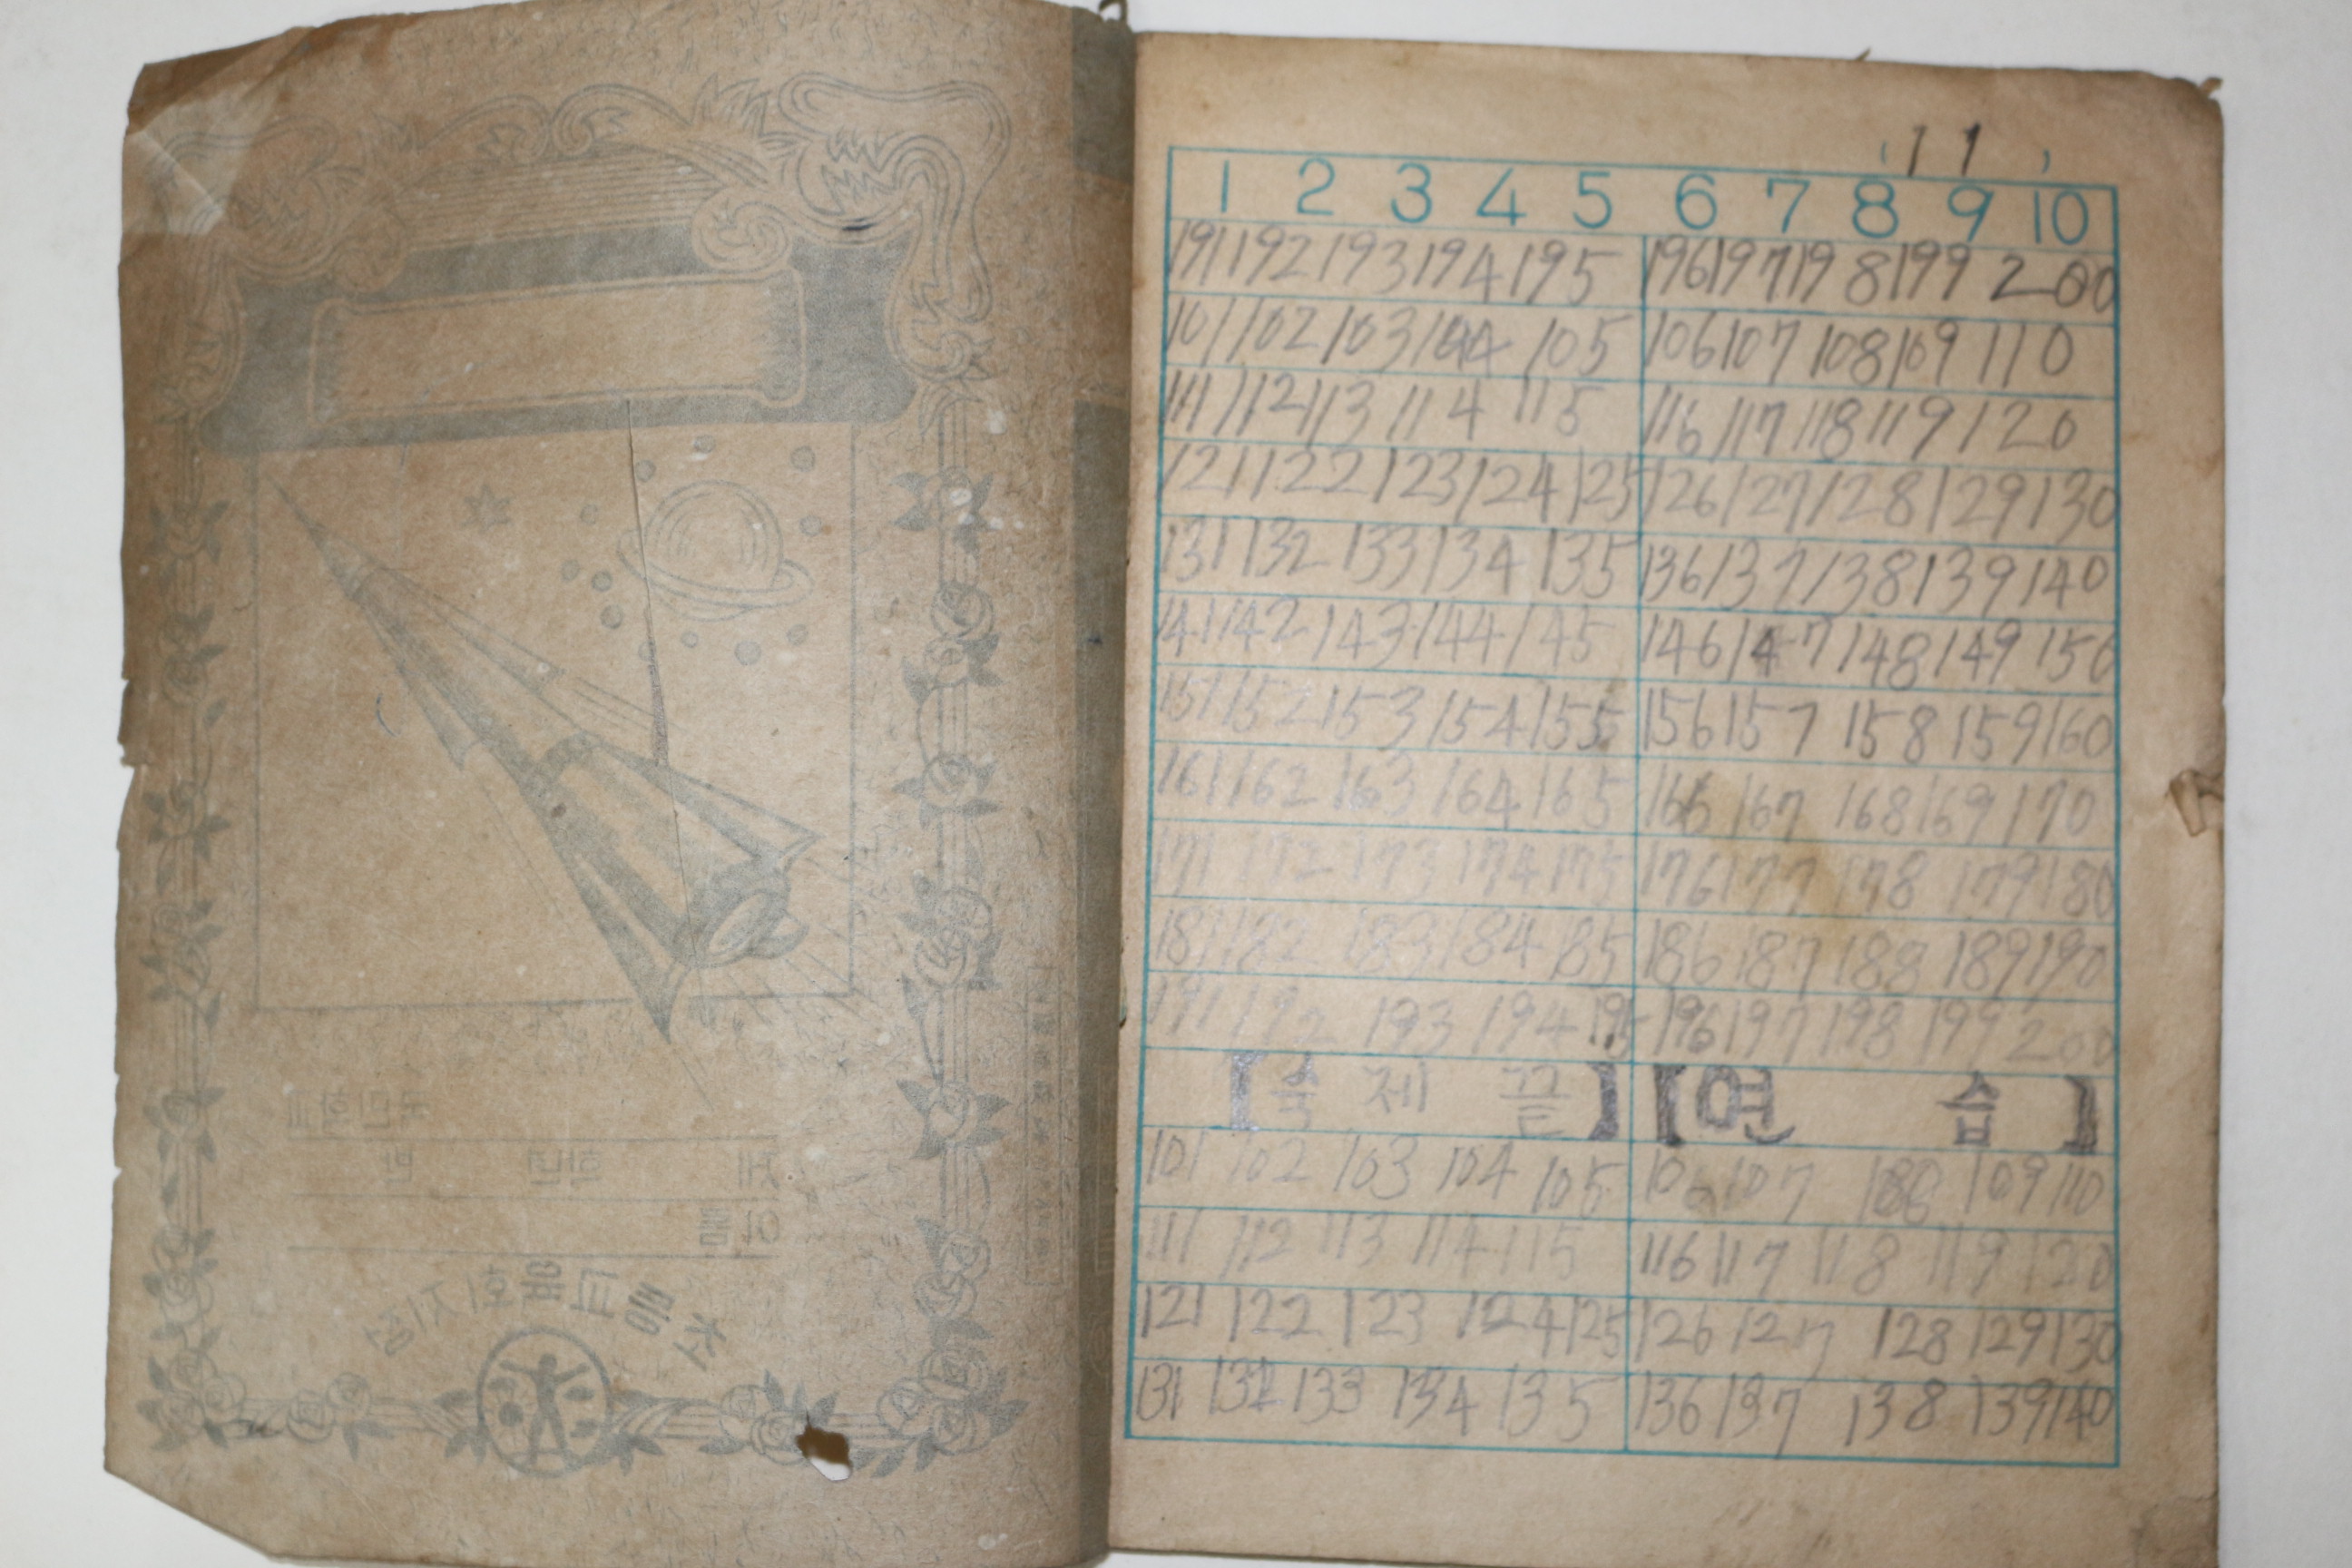 국민학교
제 학년 반
이름
초등교육회지정
11
1 2 3 4 5 6 7 8 9 10
191 192 193 194 195 196 197 198 199 200
101 102 103 104 105 106 107 108 109 110
111 112 113 114 115 116 117 118 119 120
121 122 123 124 125 126 127 128 129 130
131 132 133 134 135 136 137 138 139 140
141 142 143 144 145 146 147 148 149 150
151 152 153 154 155 156 157 158 159 160
161 162 163 164 165 166 167 168 169 170
171 172 173 174 175 176 177 178 179 180
181 182 183 184 185 186 187 188 189 190
191 192 193 194 195 196 197 198 199 200
【숙제 끝】【연 습】
101 102 103 104 105 106 107 108 109 110
111 112 113 114 115 116 117 118 119 120
121 122 123 124 125 126 127 128 129 130
131 132 133 134 135 136 137 138 139 140